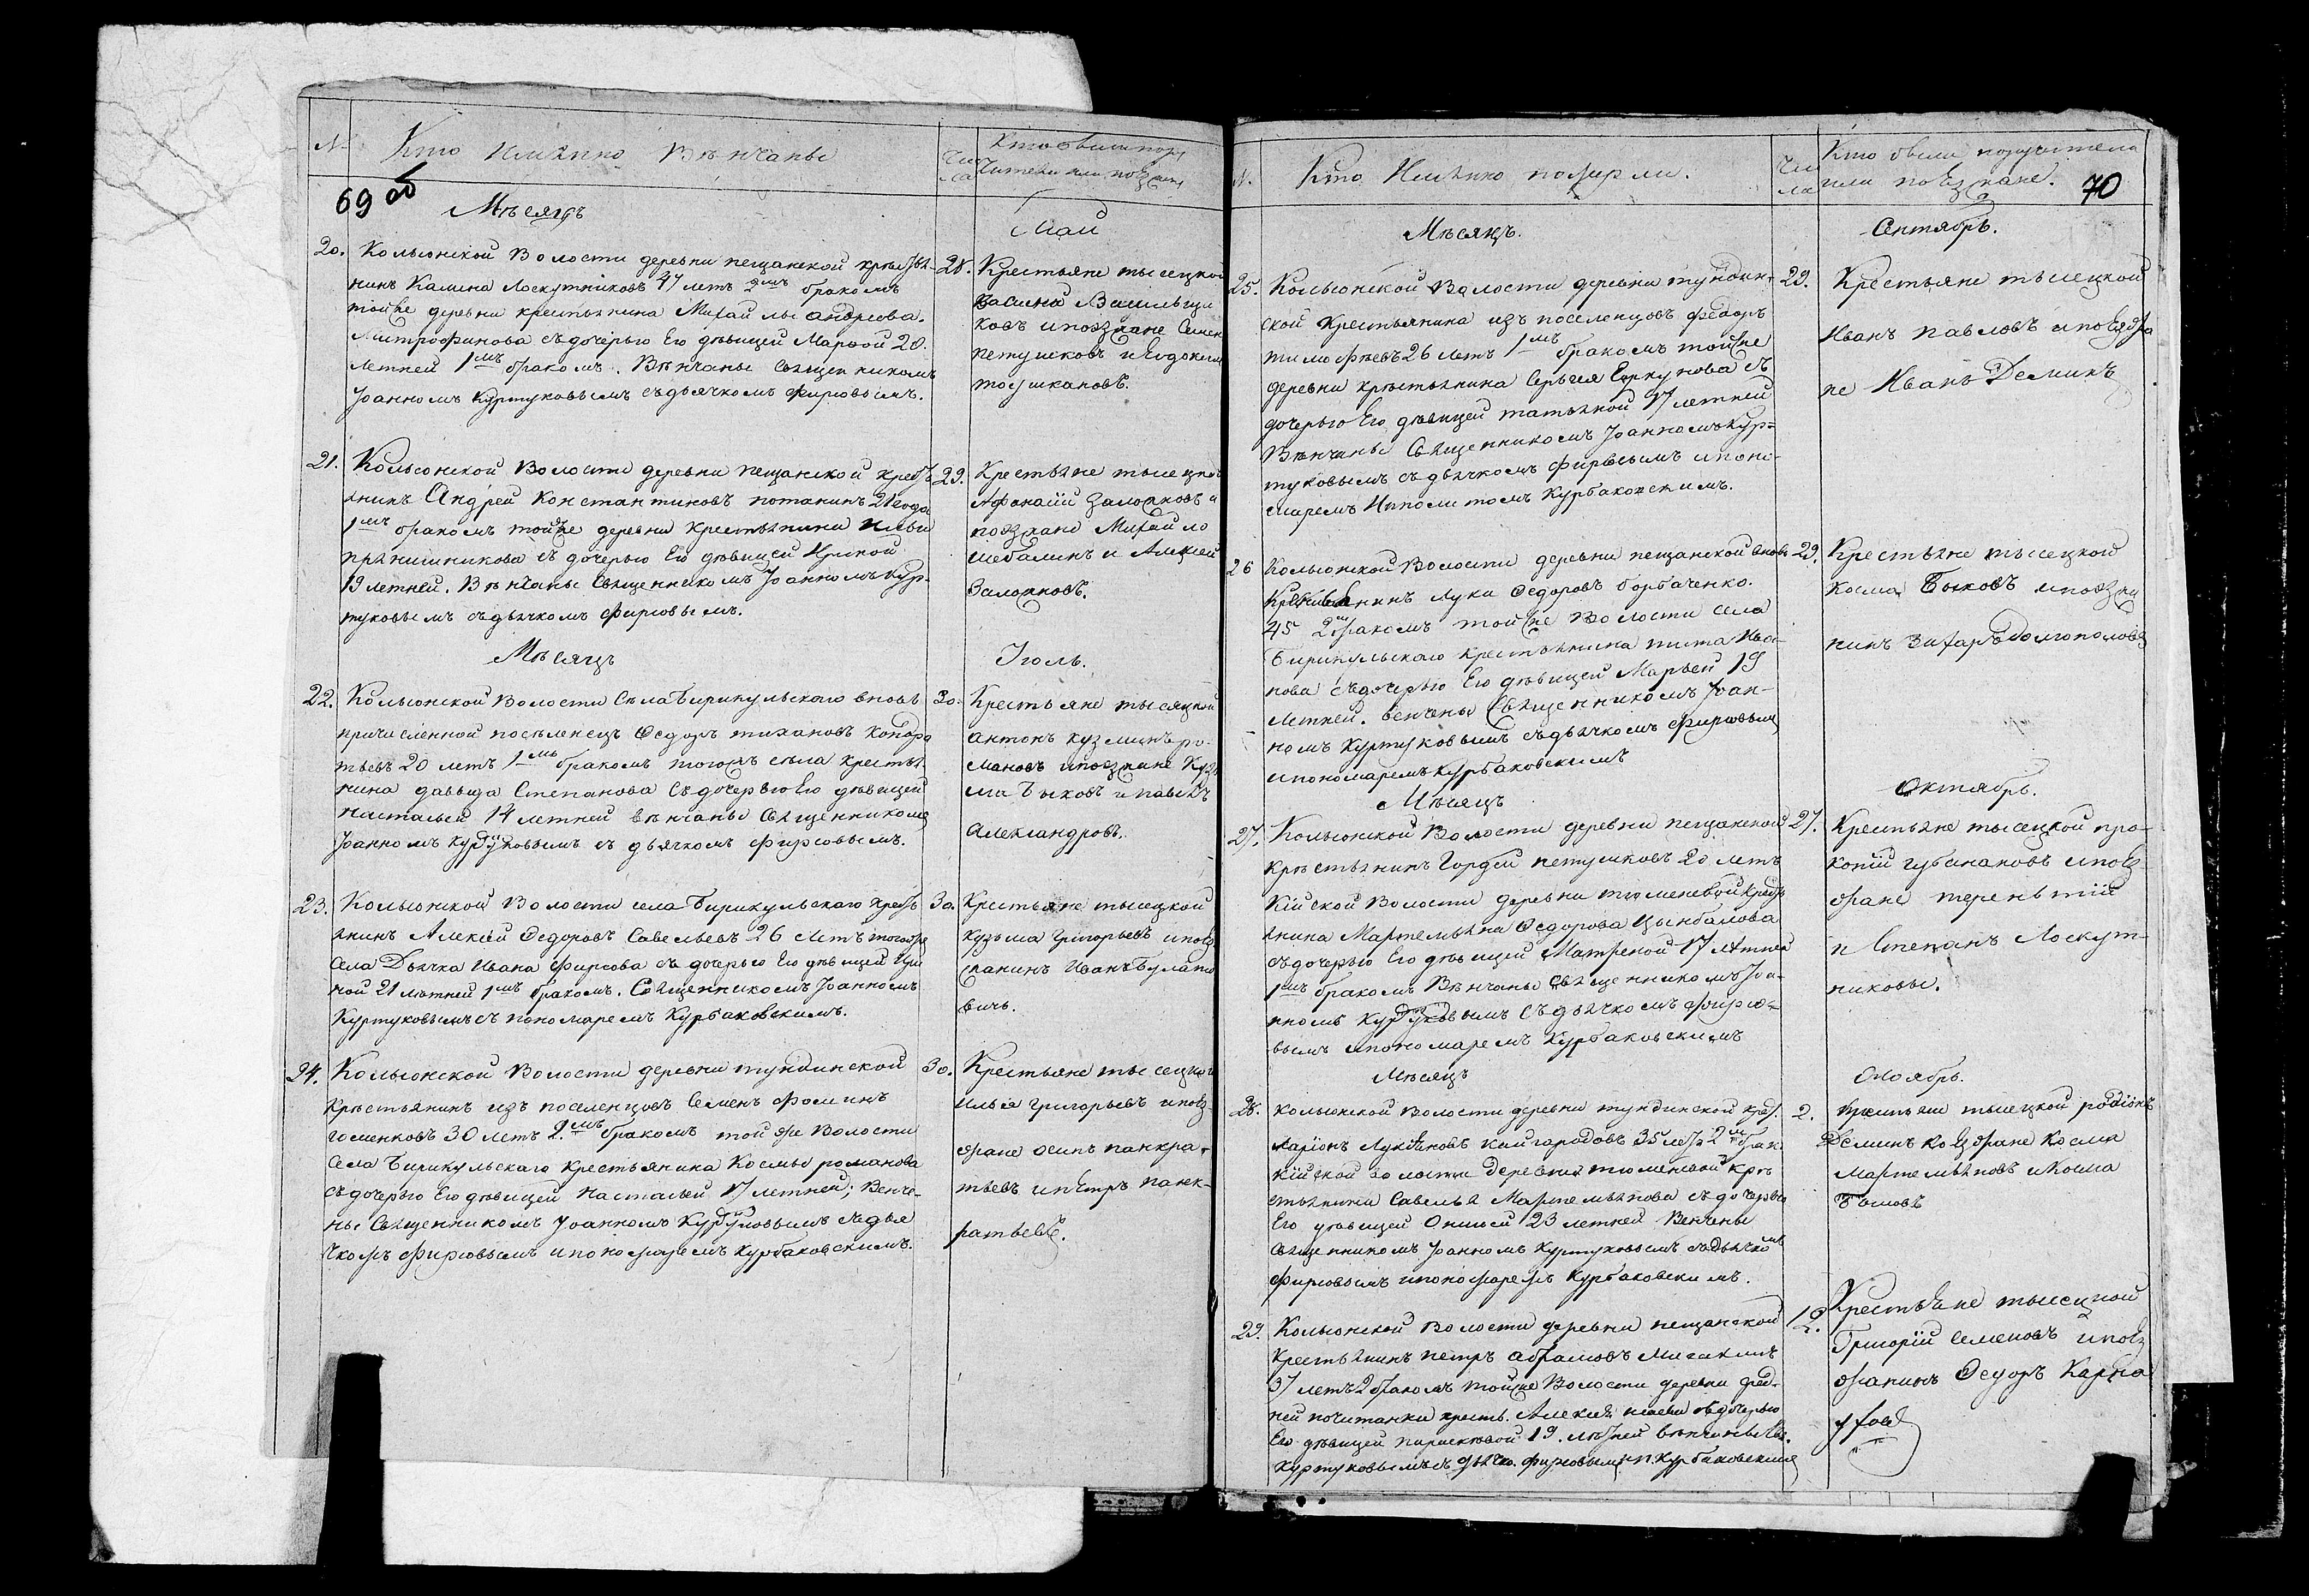 № Кто имянно венчаны Числа Кто были пору
чители или поезжане
69 об
Месяцъ Маи
20. Кольюнской Волости деревни пещанской кресть-
нинъ Калина Лоскутниковъ 47 летъ 2мъ бракомъ
тойже деревни крестьянина Михайлы андреева
Митрофанова съ дочерью Его девицей Марѳой 20.
летней 1мъ бракомъ. Венчаны Священникомъ
Іоанномъ Куртуковымъ съ дьячкомъ Фирсовымъ.
28. Крестьяне тысецкой
поезжане Семен
петушковъ и Евдоким
тоушкановъ.
21. Кольюнской Волости деревни пещанской крест
янинъ Андрей Константиновъ потанинъ 21 года
1мъ бракомъ тойже деревни Крестьянина Ильи
пряпишникова съ дочерью Его девицей Ириной
19 летней. Венчаны Священникомъ Іоанномъ Кур-
туковымъ съ дьячкомъ Фирсовымъ.
29. Крестьяне тысецкой
Афанасій Заложновъ и
поезжане Михайло
шебалинъ и Алексей
Заложновъ.
Месяцъ Іюль.
22. Кольюнской Волости Села Бирикульскаго вновь
причисленной поселенецъ Ѳедоръ тихановъ
20 летъ 1мъ бракомъ тогожъ села крестья
нина давыда Степанова съ дочерью Его девицей
Настасьей 14 летней венчаны Священникомъ
Іоанномъ Куртуковымъ съ дьячкомъ Фирсовымъ.
30. Крестьяне тысяцкой
антонъ кузминъ ро-
мановъ и поезжане Кузь
ма Быковъ и павелъ
Александровъ.
23. Кольюнской Волости села Бирикульскаго крест
янинъ Алексей Ѳедоровъ Савельевъ 26 летъ тогоже
села Дьячка Ивана Фирсова съ дочерью Его девицей Ири
ной 21 летней 1мъ бракомъ. Священникомъ Іоанномъ
Куртуковымъ съ пономаремъ Курбаковскимъ.
30. Крестьяне тысецкой
Кузьма Григорьевъ и поез
жанинъ Иванъ Булато
вичь.
24. Кольюнской Волости деревни тундинской
Крестьянинъ изъ поселенцовъ Семенъ Фоминъ
гоменковъ 30 летъ 2.мъ бракомъ той же Волости
Села Бирикульскаго крестьянина Космы романова
съ дочерью Его девицей Настасьей 17 летней; Венча-
ны Священникомъ Іоанномъ Куртуковымъ съ дья
чкомъ Фирсовымъ и пономаремъ Курбаковскимъ.
30. Крестьяне тысецкой
Илья Григорьевъ и поез-
жане осипъ панкра-
тьевъ и петръ панк-
ратьевъ.
№. Кто Имянно померли. Числа Кто были поручители
или поезжане. 70
Месяцъ. Сентябрь.
25. Кольюнской Волости деревни тундин-
ской Крестьянина изъ поселенцовъ Федоръ
тимофеевъ 26 летъ 1мъ бракомъ тойже
деревни крестьянина Сергея Еркунова съ
дочерью Его девицей татьяной 17 летней
Венчаны Священникомъ Іоанномъ Кур-
туковымъ съ дьячкомъ фирсовымъ и поно-
маремъ Иполитомъ Курбаковскимъ.
29. Крестьяне тысецкой
Иванъ павловъ и поезжа
не Иванъ Деминъ
26 Кольюнской Волости деревни пещанской вновь
Лука Ѳедоровъ борбаченко.
45 2мъ бракомъ тойже Волости села
Бирикульскаго крестьянина тита Ива-
нова съ дочерью Его девицей Марьей 19
летней. венчены Священникомъ Іоан-
номъ Куртуковымъ съ дьячкомъ Фирсовым
и пономаремъ Курбаковскимъ
29. Крестьяне тысецкой
Косма Быковъ и поезжа
нинъ Захаръ долгополовъ
Месяцъ Октябрь.
27. Кольюнской Волости деревни пещанской
крестьянинъ Гордей петушковъ 20 летъ
Кійской Волости деревни тюменевой крест
янина Мартемьяна Ѳедорова Цынбалова
съ дочерью Его девицей Матреной 17 летней
1мъ бракомъ Венчаны Священникомъ Іоа-
нномъ Куртуковымъ съ дьячкомъ фирсо-
вымъ и пономаремъ Курбаковскимъ
27. Крестьяне тысецкой про-
копій и поез-
жане терентій
и Степанъ Лоскут-
никовы.
Месяцъ Ноябрь.
28. кольюнской волости деревни тундинской крес.
ларіонъ Лукьяновъ кайгародовъ 35 летъ 2мъ брак.
кійской волости деревни тюменевой кре
стьянина Савелья Мартемьянова съ дочерью
Его девицей Онисьей 23 летней Венчены
Священникомъ Іоанномъ Куртуковымъ съ дьячкомъ
Фирсовымъ и пономаремъ Курбаковскимъ.
2. Крестьяне тысецкой родіонъ
Деминъ поезжане Косма
Мартемьяновъ и Косма
Быковъ
29. Кольюнской Волости деревни пещанской
Крестьянинъ петръ абрамовъ
37 летъ 2 бракомъ тойже Волости деревни сред-
ней почитанки кресть. Алексея исаева съ дочерью
Его девицей парасковой 19. летней венчаны свя.
Куртуковымъ съ дьячко. фирсовымъ и п. Курбаковским
12. Крестьяне тысецкой
Григорій Семеновъ и поез
жанинъ Ѳедоръ Карпа